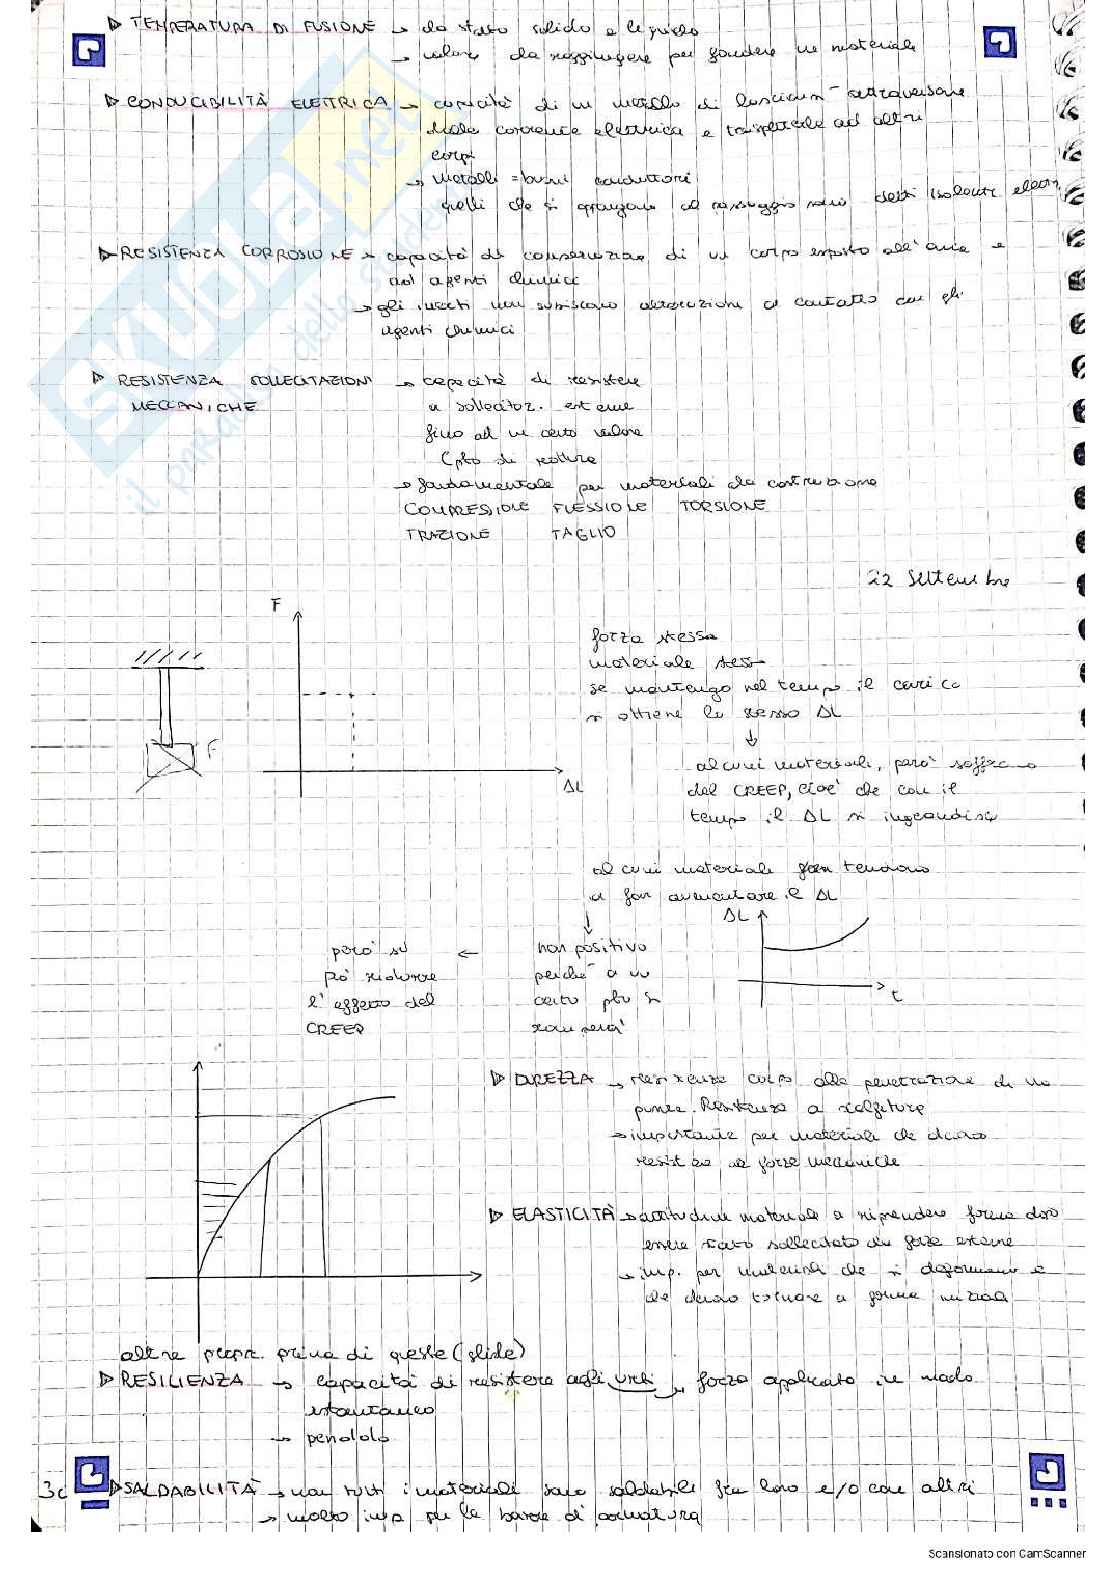 ▷ TEMPERATURA DI FUSIONE → da stato solido a liquido
→ valore da raggiungere per fondere un materiale
▷ CONDUCIBILITÀ ELETTRICA → capacità di un metallo di lasciarsi attraversare
dalla corrente elettrica e trasmetterla ad altri
corpi
→ metalli = buoni conduttori
quelli che si oppongono al passaggio sono detti isolanti elettr
▷ RESISTENZA CORROSIONE → capacità di conservazione di un corpo esposto all'aria e
ad agenti chimici
→ gli non subiscono alterazioni a contatto con gli
agenti chimici
▷ RESISTENZA SOLLECITAZIONI → capacità di resistere
MECCANICHE a sollecitaz. esterne
fino ad un certo valore
(pto di rottura
→ fondamentale per materiali da costruzione
COMPRESSIONE FLESSIONE TORSIONE
TRAZIONE TAGLIO
22 Settembre
F
forza stessa
materiale stess
se mantengo nel tempo il carico
si ottiene lo stesso ΔL
F
↓
ΔL
alcuni materiali, però soffrono
del CREEP, cioè che con il
tempo il ΔL si ingrandisce
alcuni materiale tendono
a far aumentare il ΔL
↓
ΔL
t
non positivo
perché a un
certo pto si
romperà
←
però si
può ridurre
l'effetto del
CREEP
▷ DUREZZA → resistenza corpo alla penetrazione di una
punta. Resistenza a scalfiture
→ importante per materiali che devono
resistere a forze meccaniche
▷ ELASTICITÀ → attitudine materiale a riprendere forma dopo
essere stato sollecitato da forze esterne
→ imp. per materiali che si deformano e
che devono tornare a forma iniziale
altre propr. prima di queste (slide)
▷ RESILIENZA → capacità di resistere agli urti → forza applicata in modo
istantaneo
→ pendolo
▷ SALDABILITÀ → non tutti i materiali sono saldabili fra loro e/o con altri
→ molto imp per le barre di armatura
skuola.net
il paradiso dello studente
Scansionato con CamScanner